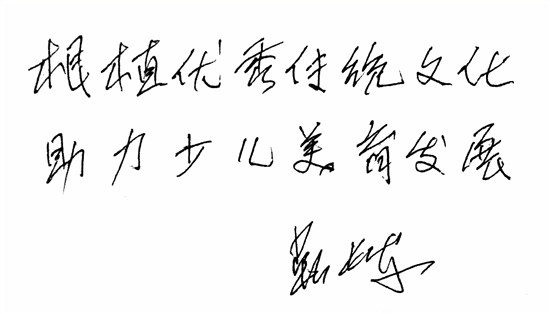 根植优秀传统文化
助力少儿美育发展